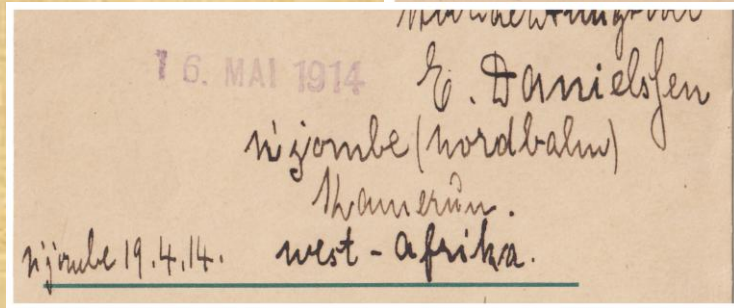 16. MAI 1914
E. Danielssen
N'jombe (Nordbahn)
Kamerun.
Njombe 19.4.14. West-Afrika.